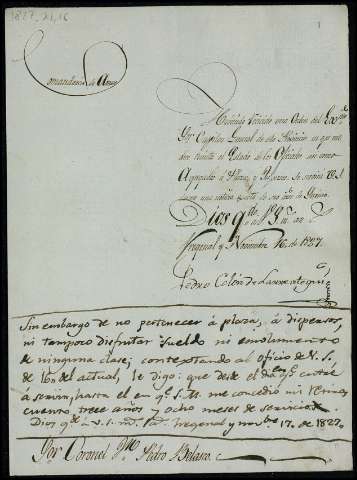 1827, XI, 16
1
Comandancia de Armas
Habiendo recivido una Orden del Exmo
Sor Capitan General de esta Provincia en que me
dice remita el Estado de los Oficiales que estan
Agregados á Plazas, y Dispersos. Se servirá V. S.
una noticia exacta de sus años de Servicio.
Dios gde á V. S. ms as
Fregenal y Noviembre 16 de 1827
Pedro Colón de Larreategui
Sin embargo de no pertenecer á plaza, á dispersos,
ni tampoco disfrutar sueldo ni emolumento
de ninguna clase; contextando al oficio de V. S.
de 16 del actual, le digo: que desde el dia qe entré
á servir, hasta el en qe S. M. me concedió mi retiro,
cuento trece años y ocho meses de servicios.
Dios gde á V. S. ms as Fregenal y novbre 17 de 1827.
Sor Coronel Dn Pedro